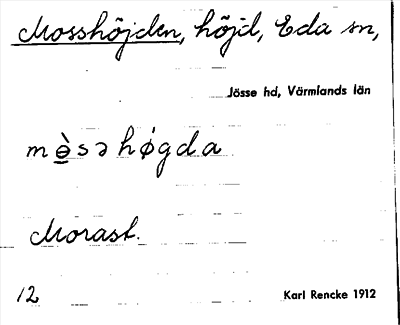 Mosshöjden, höjd, Eda sn,
Jösse hd, Värmlands län
mɵ̯̀sə hǿgda
Morast.
12
Karl Rencke 1912